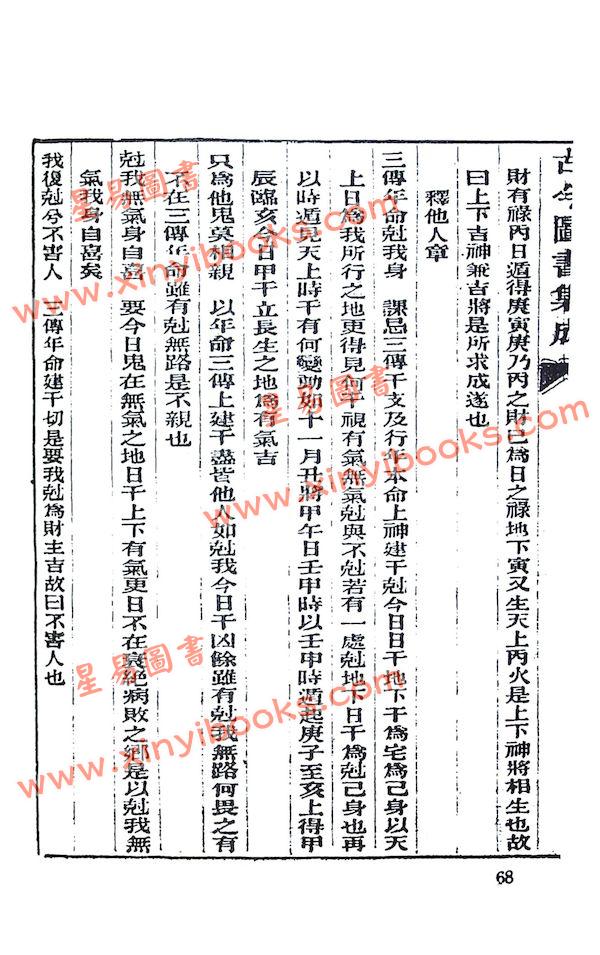 古今圖書集成
財有祿丙日遁得庚寅庚乃丙之財己為日之祿地下寅又生天上丙火是上下神將相生也故
曰上下吉神兼吉將是所求成遂也
釋他人章
三傳年命尅我身　課忌三傳干支及行年本命上神建干尅今日日干地下干為宅為己身以天
上日為我所行之地更得見何干視有氣無氣尅與不尅若有一處尅地下日干為尅己身也再
以時遁見天上時干有何變動如十一月丑將甲午日壬申時以壬申時遁起庚子至亥上得甲
辰臨亥今日甲干立長生之地為有氣吉
只為他鬼莫相親　以年命三傳上建干盡皆他人如尅我今日干凶餘雖有尅我無路何畏之有
不在三傳年命雖有尅無路是不親也
尅我無氣身自喜　要今日鬼在無氣之地日干上下有氣更日不在衰絕病敗之鄉是以尅我無
氣我身自喜矣
我復尅兮不害人　三傳年命建干切是要我尅為財主吉故曰不害人也
68
星易圖書
www.xinyibooks.com
星易圖書
www.xinyibooks.com
星易圖書
www.xinyibooks.com